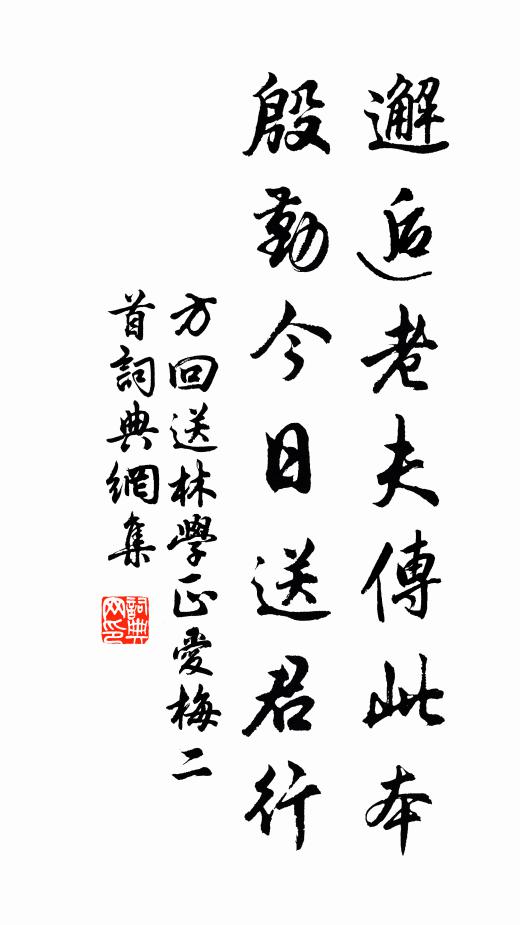 邂逅老夫傳此本
殷勤今日送君行
方回送林學正愛梅二
首詞典網集
詞典
网印